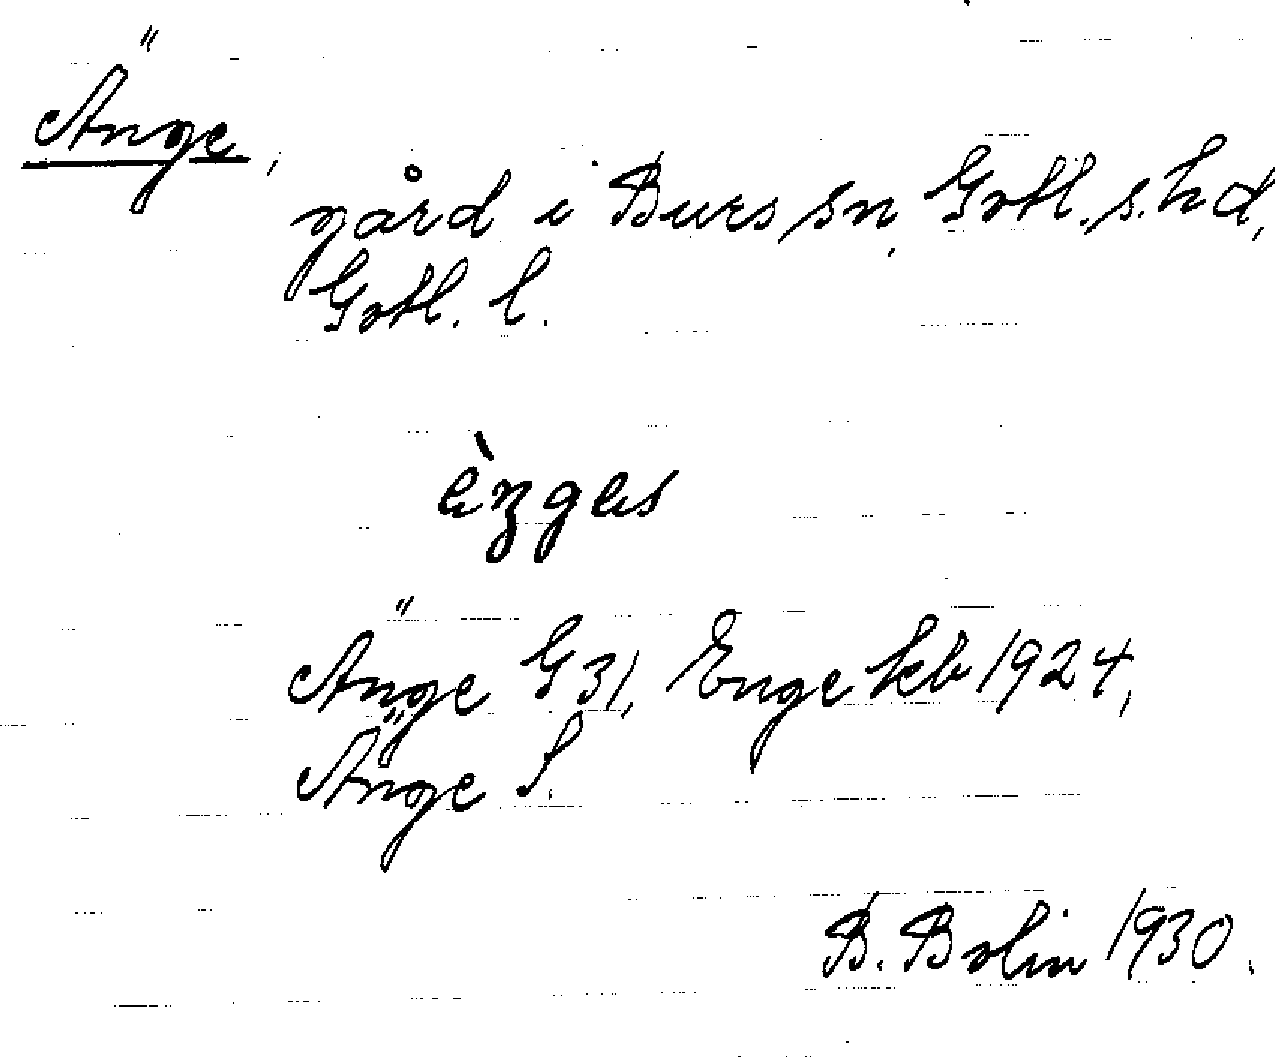 Änge,
gård i Burs sn, Gotl. s. hd,
Gotl. l.
Änge G 31, Enge kb 1924,
Änge S.
B. Bolin 1930.